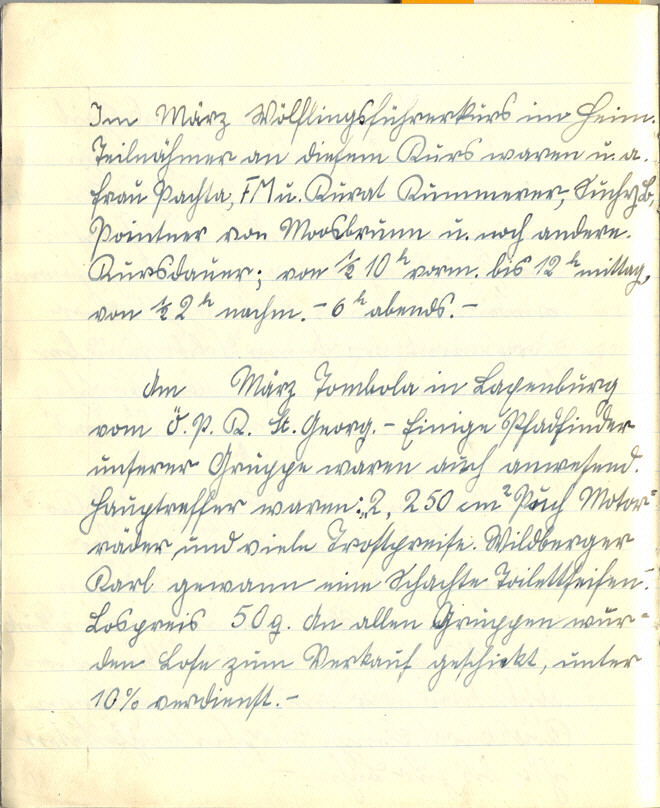 Im März Wölflingsführerkurs im Heim.
Teilnähmer an diesem Kurs waren u. a.
Frau Pachta, FM u. Kurat Kummerer, Suchy B.,
Pointner von Moosbrunn u. noch andere.
Kursdauer; von ½ 10 h vorm. bis 12 h mittag,
von ½ 2 h nachm. – 6 h abends. –
Am März Tombola in Laxenburg
vom Ö. P. K. St. Georg. – Einige Pfadfinder
unserer Gruppe waren auch anwesend.
Haupttreffer waren: 2, 250 cm² Puch Motor=
räder und viele Trostpreise. Wildberger
Karl gewann eine Schachte Toilettseifen.
Lospreis 50 g. An allen Gruppen wur=
den Lose zum Verkauf geschickt, unter
10% verdienst. –